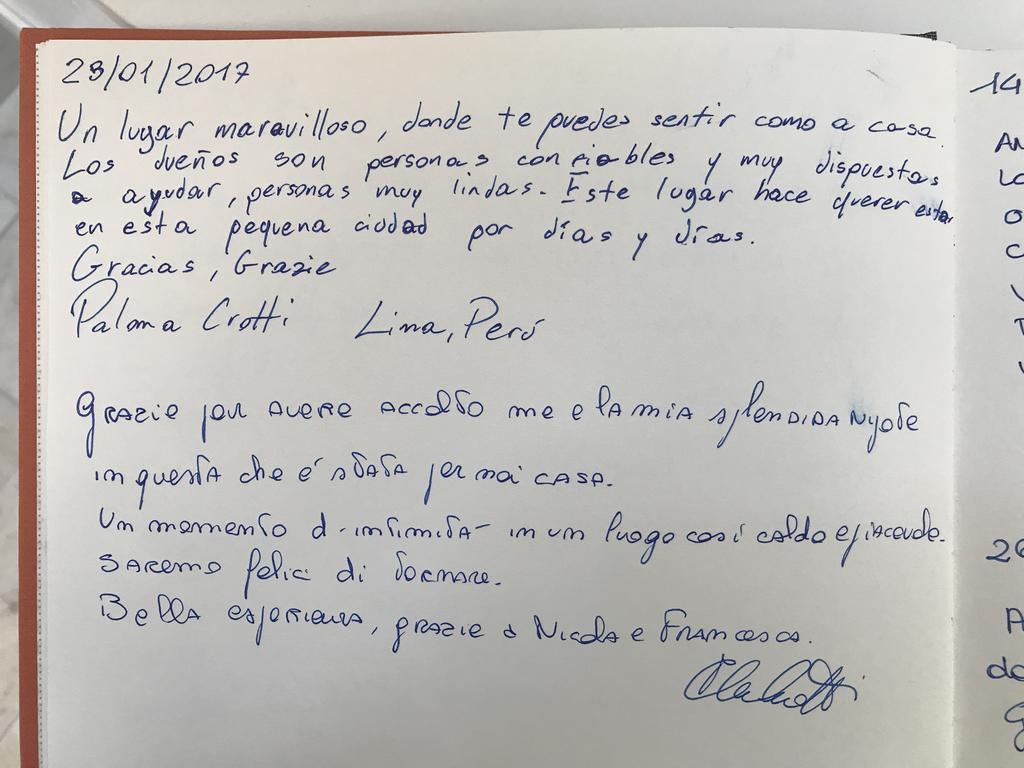 23/01/2017
Un lugar maravilloso, donde te puedes sentir como a casa.
Los dueños son personas confiables y muy dispuestas
a ayudar, personas muy lindas. Este lugar hace querer estar
en esta pequena ciudad por días y días.
Gracias, Grazie
Paloma Crotti Lima, Perú
Grazie per avere accolto me e la mia splendida nipote
in questa che é stata per noi casa.
Un momento d'intimità in un luogo cosí caldo e piacevole.
Saremo felici di tornare.
Bella esperienza, grazie a Nicola e Francesca.
14
26